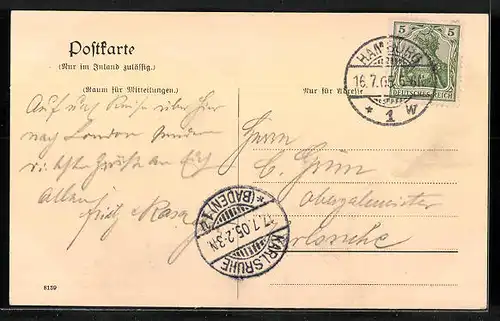 Postkarte
(Nur im Inland zulässig.)
(Raum für Mitteilungen.)
Nur für Adresse
5 5
DEUTSCHES REICH
HAMBURG
16.7.05
* 1 W
Auf uns Reise über hier
nach London senden
die besten Grüße an Euch
Allen
Fritz
Herrn
C. Grün
Karlsruhe
KARLSRUHE
17.7.05.2-3N.
* (BADEN) 1.
8159